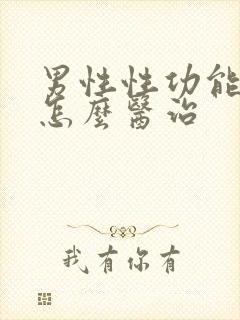 男性性功能
怎麼醫治
我有你有